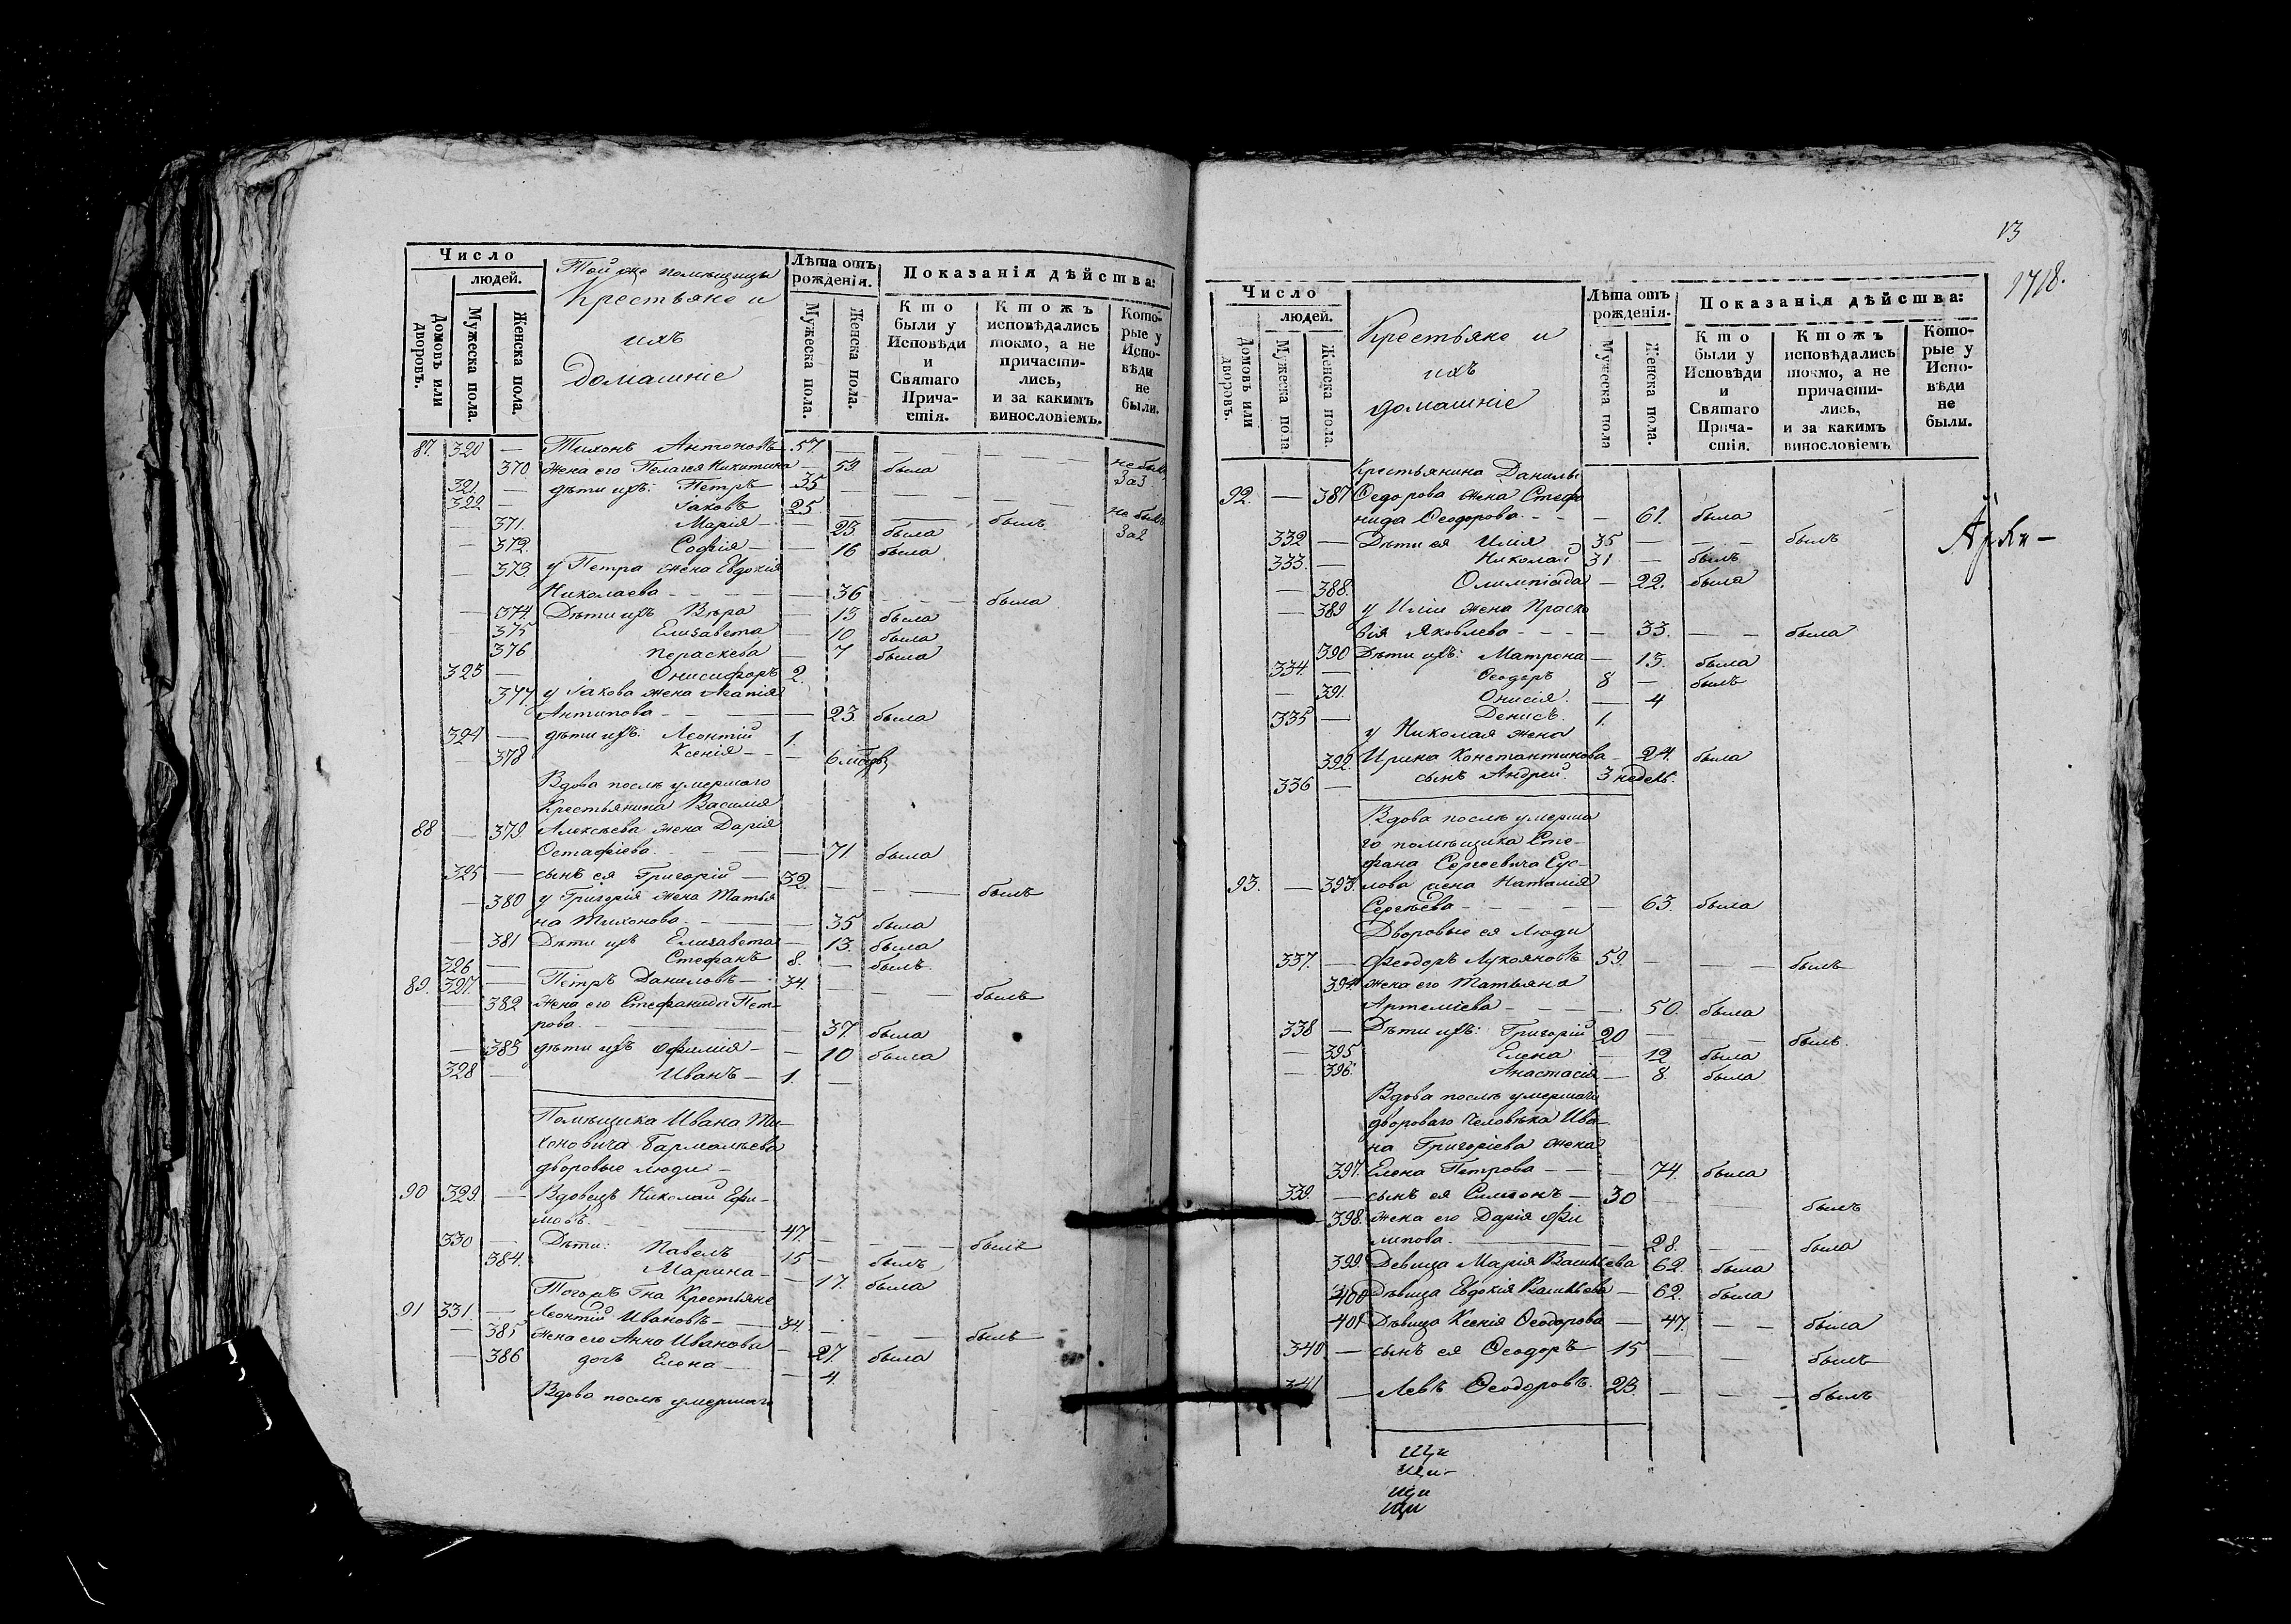 Число
людей.
Домовъ или дворовъ.
Мужеска пола.
Женска пола.
Той же помѣщицы
Крестьяне и
ихъ
домашніе
Лѣта отъ рожденія.
Мужеска пола.
Женска пола.
Показанія дѣйства:
Кто были у Исповѣди и Святаго Прича-стія.
Ктожъ исповѣдались токмо, а не причасти-лись, и за какимъ винословіемъ.
Кото-рые у Испо-вѣди не были.
87. 320 — Тихонъ Антоновъ 57.
370 жена его Пелагея Никитина — 59 была
321. — дѣти ихъ: Петръ 35 —
322 — Іаковъ 25.
— 371. Марія — — 23. была
— 372. Софія — — 16 была
— 373. у Петра жена Евдокія
Николаева — 36 была
— 374. Дѣти ихъ Вѣра — 13 была
375 Елизавета — 10 была
376 Пераскева — 7 была
323 — Онисифоръ 2.
377. у Іакова жена Агапія
Антипова — 23. была
324 — дѣти ихъ: Леонтій 1.
— 378 Ксенія —
Вдова послѣ умершаго
Крестьянина Василія
88 — 379. Алексѣева жена Дарія
Остафіева. — 71 была
325 — сынъ ея Григорій — 32. — — былъ
— 380 у Григорія жена Татья
на Тихонова. — 35 была
— 381 Дѣти ихъ Елизавета — 13. была
326 — Стефанъ 8. — былъ.
89. 327. — Петръ Даниловъ — 34. — — былъ
— 382 жена его Стефанида Пет-
рова. — 37. была
— 383 дѣти ихъ Офимія — — 10 была
328 — Иванъ — 1. —
Помѣщика Ивана Ти-
хоновича Бармалѣева
дворовые люди —
90 329. — Вдовецъ Николай Ефи-
мовъ. — 47. — — былъ
330 — Дѣти: Павелъ 15 — былъ
384. Марина — — 17. была
Тогожъ Гна Крестьяне
91 331. — Леонтій Ивановъ — 34. — — былъ
— 385 жена его Анна Иванова — 27. была
— 386 дочь Елена — — 4.
Вдова послѣ умершаго
13
1718.
Число
людей.
Домовъ или дворовъ.
Мужеска пола
Женска пола.
Крестьяне и
ихъ
домашніе
Лѣта отъ рожденія.
Мужеска пола
Женска пола.
Показанія дѣйства:
Кто были у Исповѣди и Святаго Прича-стія.
Ктожъ исповѣдались токмо, а не причасти-лись, и за какимъ винословіемъ
Кото-рые у Испо-вѣди не были.
Крестьянина Данилы
92. — 387 Ѳедорова жена Стефа
нида Ѳеодорова — — 61. была
332 — Дѣти ея Илія 35 — — былъ
333. — Николай 31 — былъ
— 388. Олимпіада — 22. была
— 389 у Иліи жена Праско
вія Яковлева — — 33. — — была
390 Дѣти ихъ: Матрона — 13. была
334. — Ѳеодоръ 8 — былъ
— 391. Онисія — 4
335 — Денисъ. 1.
у Николая жена
392. Ирина Константинова — 24. была
336 — сынъ Андрей. 3 недель.
Вдова послѣ умерша
го помѣщика Сте-
фана Сергеевича Сус-
93. — 393. лова жена Наталія
Сергѣева — — 63. была
Дворовые ея люди
337. — Ѳеодоръ Лукояновъ 59. — — былъ
394 жена его Татьяна
Артеміева — — 50. была
338 — Дѣти ихъ: Григорій 20 — — былъ
— 395 Елена — 12 была
— 396. Анастасія — 8. была
Вдова послѣ умершаго
двороваго Человѣка Ива-
на Григоріева жена
397. Елена Петрова — — 74. была
339. — сынъ ея Симеонъ — 30 — — былъ
398. жена его Дарія Фи
липова. — 28. — — была
399. Девица Марія Васильева 62. была
400 Дѣвица Евдокія Васильева — 62. была
401 Дѣвица Ксенія Ѳеодорова — 47. — — была
340 — сынъ ея Ѳеодоръ 15 — — былъ
341 — Левъ Ѳеодоровъ. 23. — — былъ